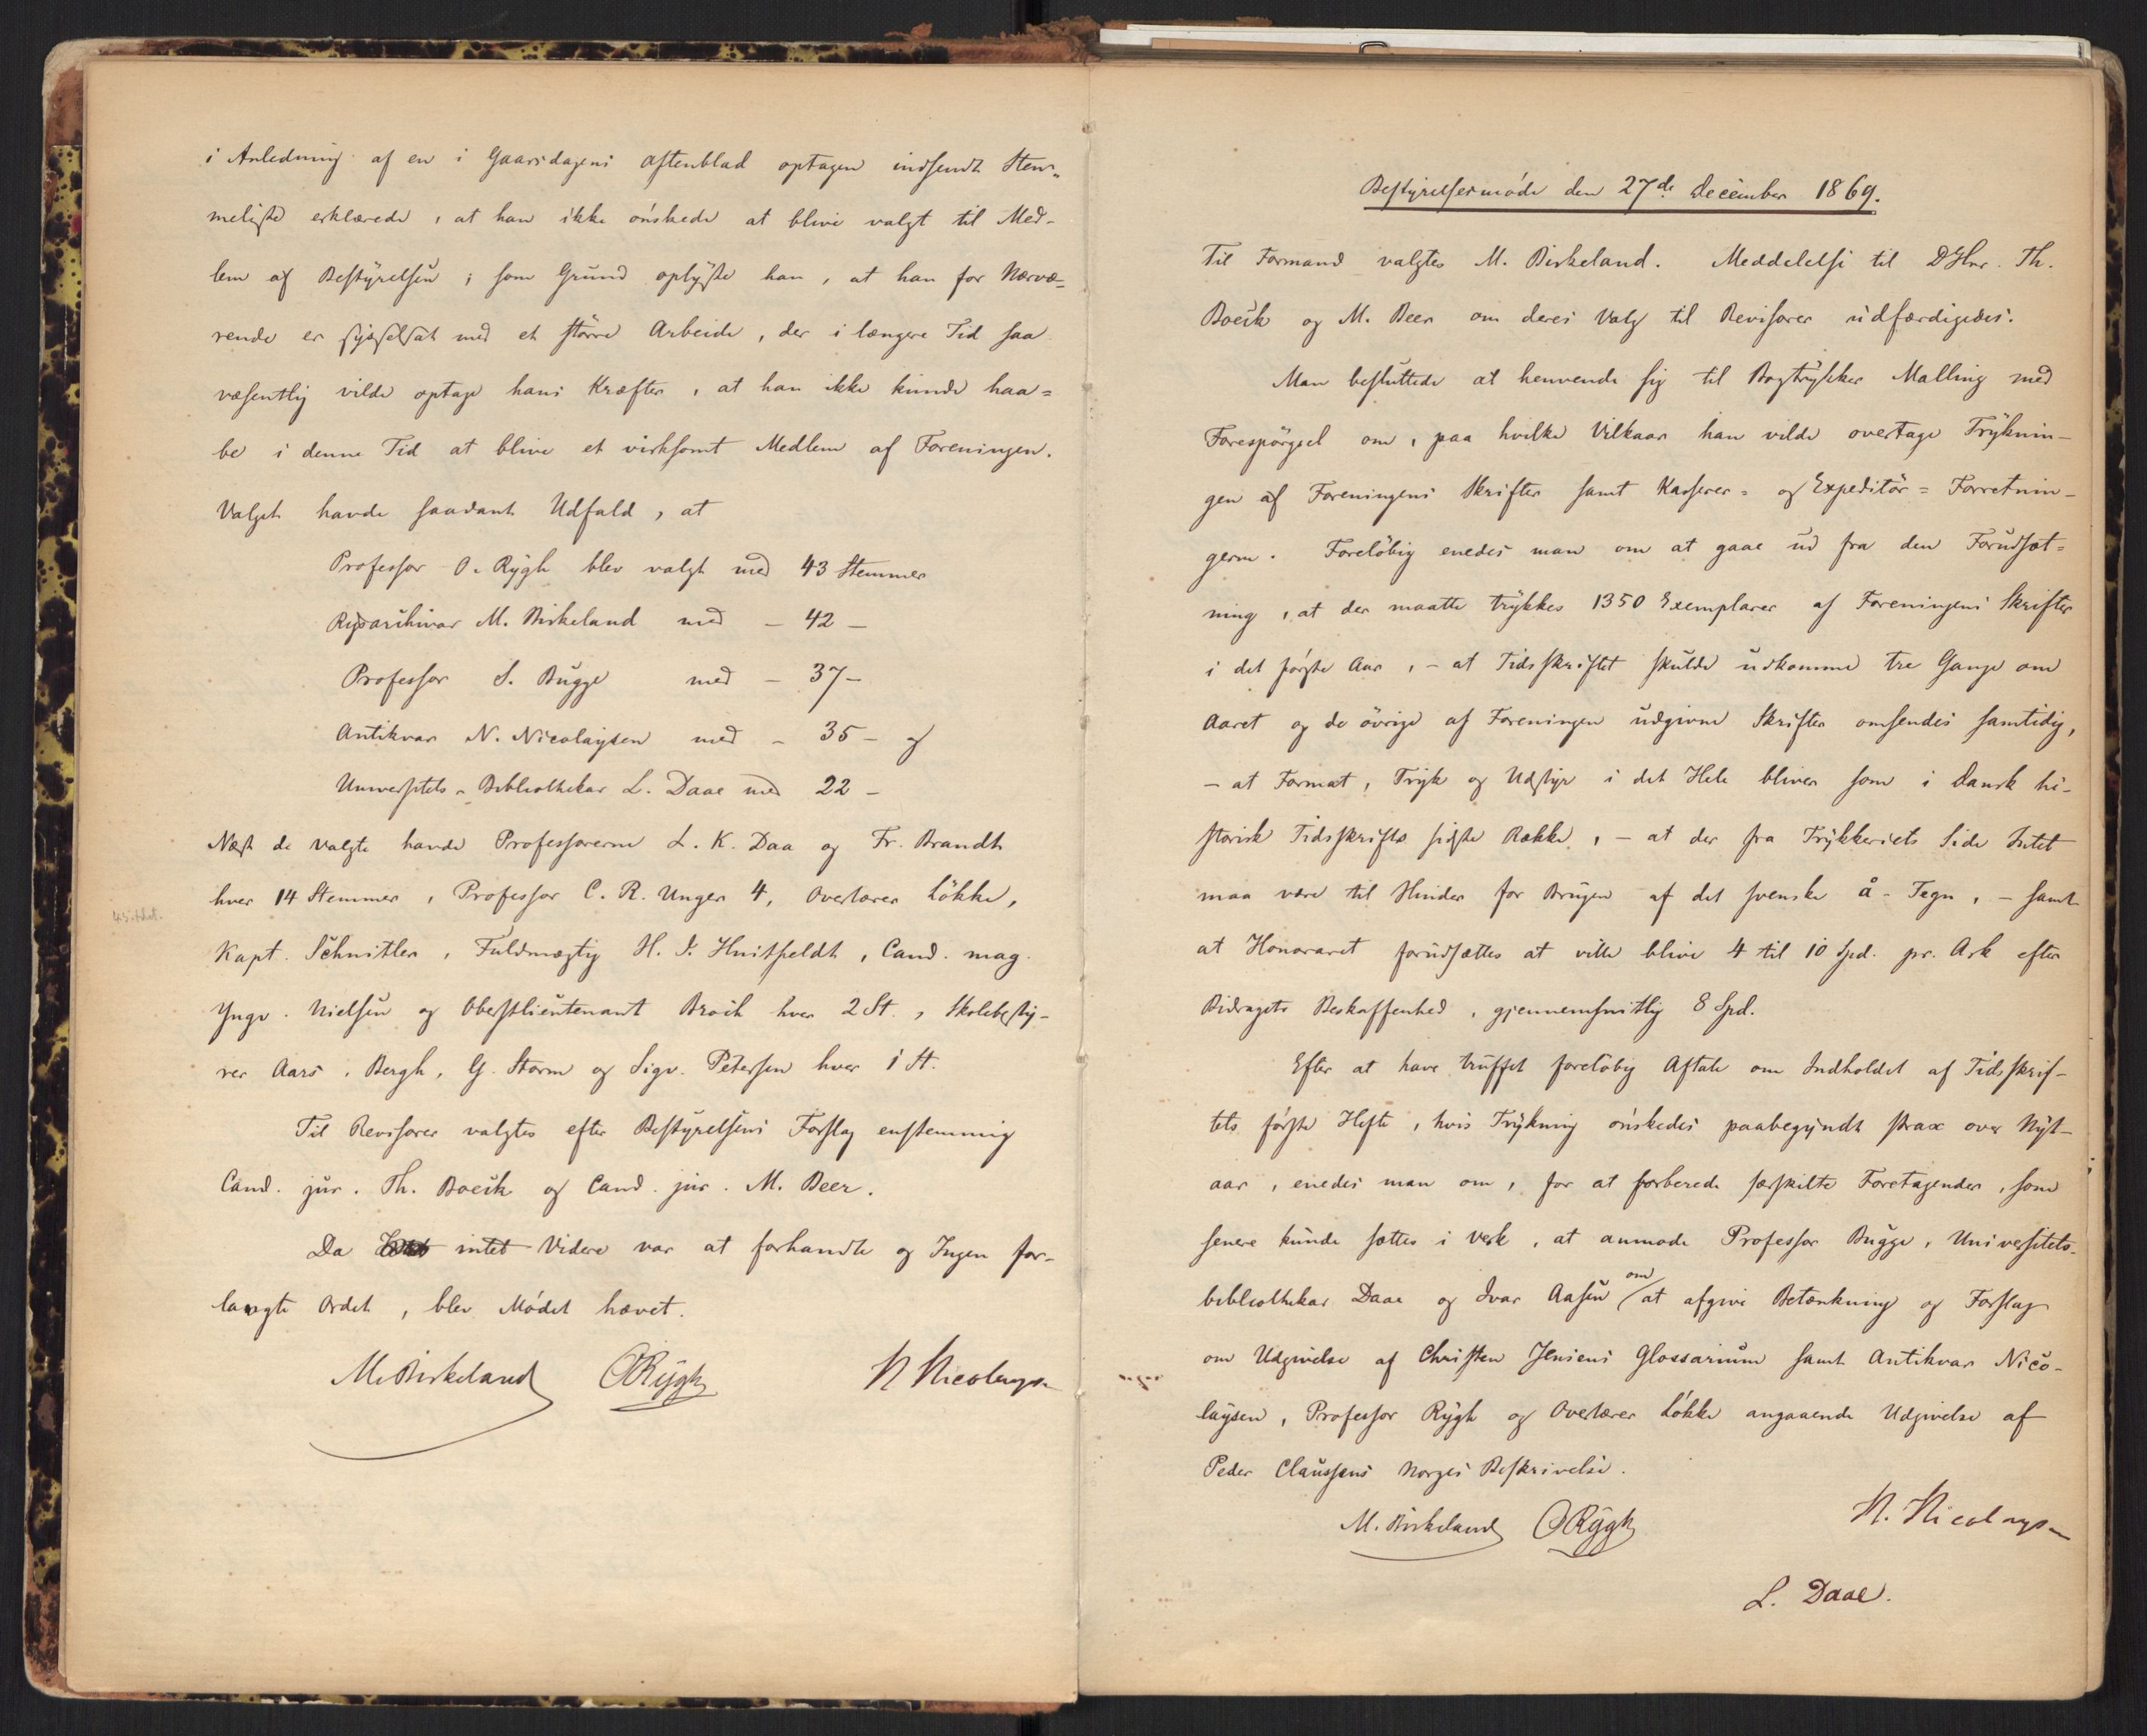 i Anledning af en i Gaarsdagens Aftenblad optagen indsendt Stem-
meliste erklærede, at han ikke ønskede at blive valgt til Med-
lem af Bestyrelsen; som Grund oplyste han, at han for Nærvæ-
rende er sysselsat med et større Arbeide, der i længere Tid saa
væsentlig vilde optage hans Kræfter, at han ikke kunde haa-
be i denne Tid at blive et virksomt Medlem af Foreningen.
Valget havde saadant Udfald, at
Professor O. Rygh blev valgt med 43 Stemmer
Rigsarchivar M. Birkeland med – 42 –
Professor S. Bugge med – 37 –
Antikvar N. Nicolaysen med – 35 – og
Universitets-Bibliothekar L. Daae med 22 –
Næst de valgte havde Professorerne L. K. Daa og Fr. Brandt
hver 14 Stemmer, Professor C. R. Unger 4, Overlærer Løkke,
Kapt. Schnitler, Fuldmægtig H. J. Huitfeldt, Cand. mag.
Yngv. Nielsen og Oberstlieutenant Broch hver 2 St., Skolebesty-
rer Aars, Bergh, G. Storm og Sigv. Petersen hver 1 St.
Til Revisorer valgtes efter Bestyrelsens Forslag enstemmig
Cand. jur. Th. Boeck og Cand. jur. M. Beer.
Da intet Videre var at forhandle og Ingen for-
langte Ordet, blev Mødet hævet.
M. Birkeland ORygh N Nicolaysen
Bestyrelsesmøde den 27de December 1869.
Til Formand valgtes M. Birkeland. Meddelelse til DHrr. Th.
Boeck og M. Beer om deres Valg til Revisorer udfærdigedes.
Man besluttede at henvende sig til Bogtrykker Malling med
Forespørgsel om, paa hvilke Vilkaar han vilde overtage Tryknin-
gen af Foreningens Skrifter samt Kasserer- og Expeditør-Forretnin-
gerne. Foreløbig enedes man om at gaae ud fra den Forudsæt-
ning, at der maatte trykkes 1350 Exemplarer af Foreningens Skrifter
i det første Aar, – at Tidsskriftet skulde udkomme tre Gange om
Aaret og de øvrige af Foreningen udgivne Skrifter omsendes samtidig,
– at Format, Tryk og Udstyr i det Hele bliver som i Dansk hi-
storisk Tidsskrifts sidste Række, – at der fra Trykkeriets Side Intet
maa være til Hinder for Brugen af det svenske å-Tegn, – samt
at Honoraret forudsættes at ville blive 4 til 10 Spd. pr. Ark efter
Bidragets Beskaffenhed, gjennemsnitlig 8 Spd.
Efter at have truffet foreløbig Aftale om Indholdet af Tidsskrif-
tets første Hefte, hvis Trykning ønskedes paabegyndt strax over Nyt-
aar, enedes man om, for at forberede særskilte Foretagender, som
senere kunde sættes i Verk, at anmode Professor Bugge, Universitets-
bibliothekar Daae og Ivar Aasen om at afgive Betænkning og Forslag
om Udgivelse af Christen Jensens Glossarium samt Antikvar Nico-
laysen, Professor Rygh og Overlærer Løkke angaaende Udgivelse af
Peder Claussøns Norges Beskrivelse.
M. Birkeland ORygh N. Nicolaysen
L. Daae.